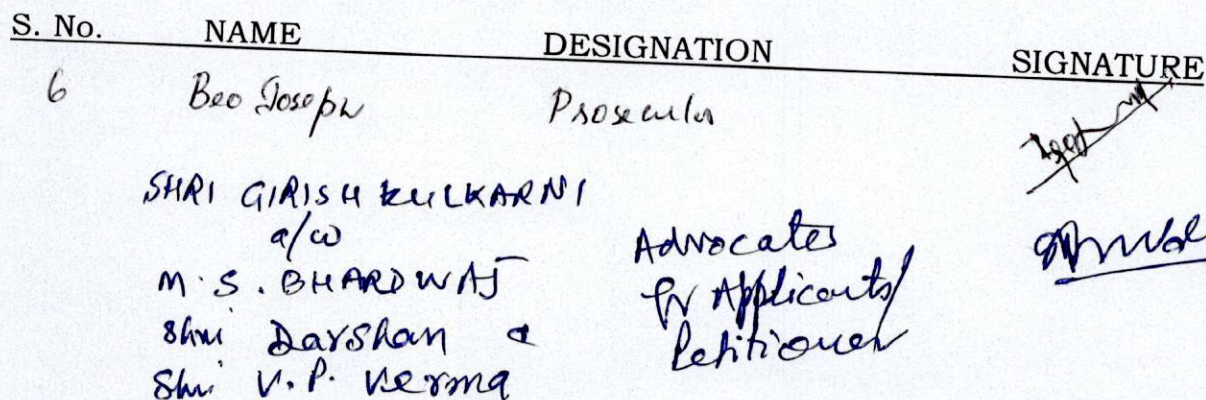 S. No. NAME DESIGNATION SIGNATURE
6 Beo Joseph Prosecutor
SHRI GIRISH KULKARNI
a/w
M. S. BHARDWAJ
Shri Darshan &
Shri V. P. Verma
Advocates
for Applicants/
Petitioner